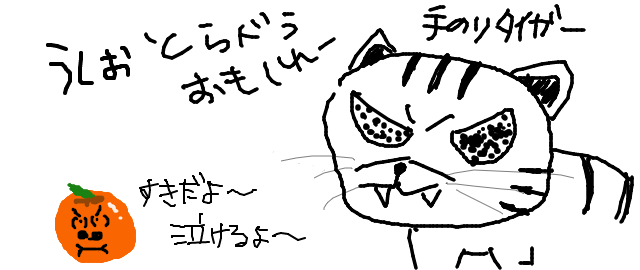 うしおととらどう
おもしれー
手のりタイガー
すきだよ～
泣けるよ～